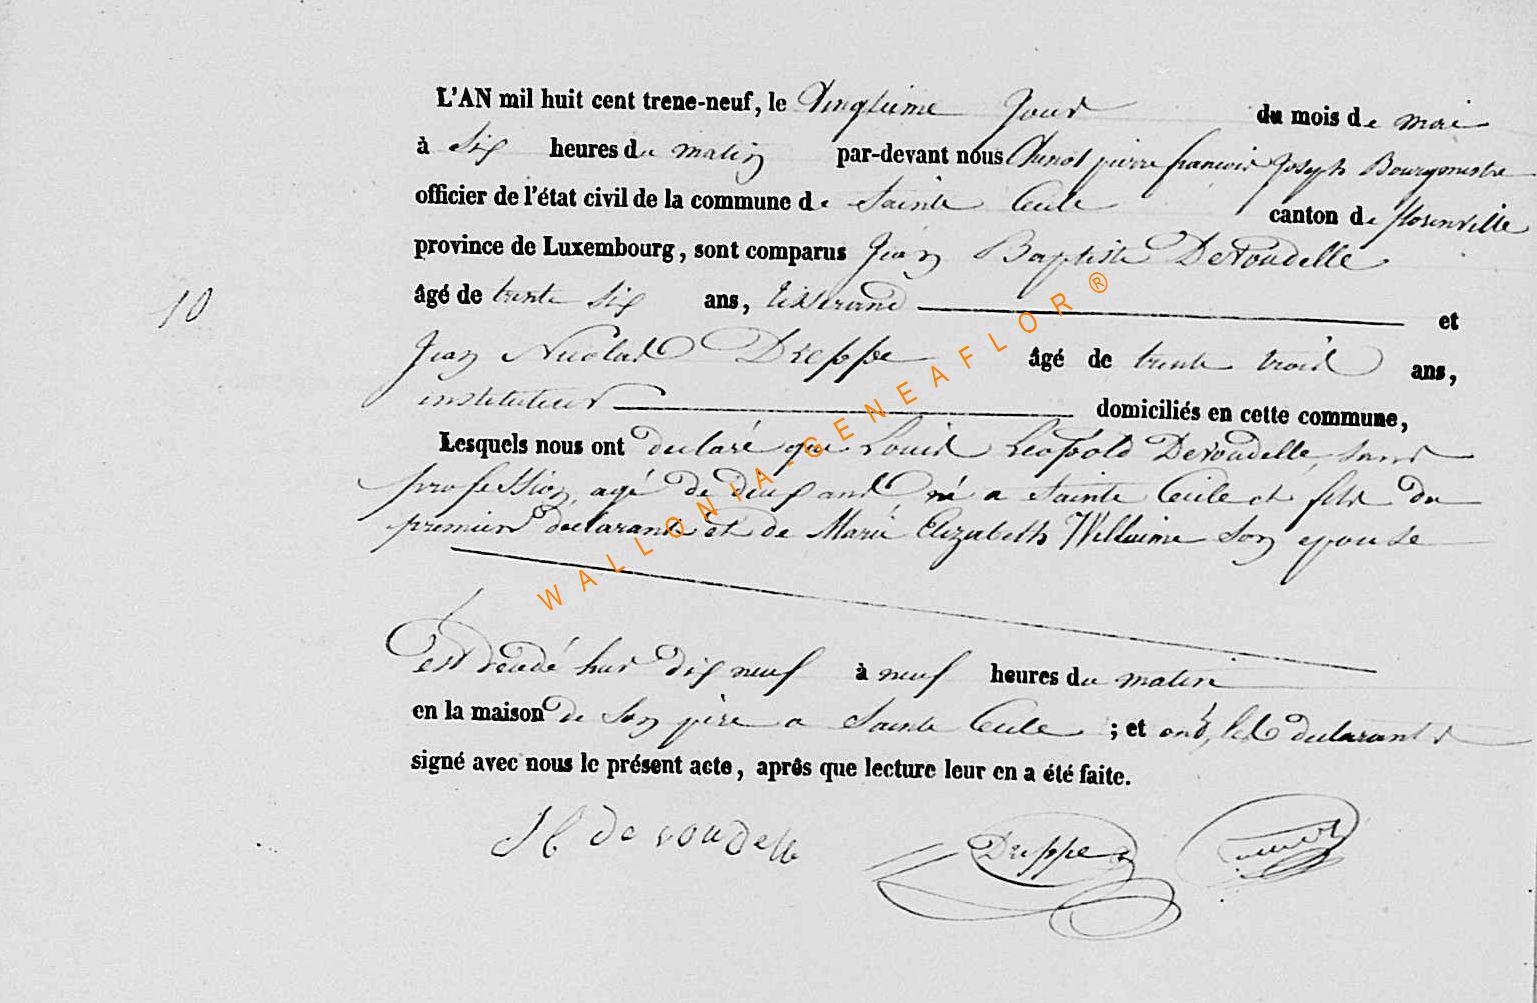 L'AN mil huit cent trene-neuf, le Vingtieme jour du mois de mai
à six heures du matin par-devant nous pierre francois Joseph Bourgmestre
officier de l'état civil de la commune de Sainte Cecile canton de florenville
province de Luxembourg, sont comparus Jean Baptiste Devoudelle
âgé de trente six ans, tisserand et
10
Jean Nicolas Dreppe âgé de trente trois ans,
instituteur domiciliés en cette commune,
Lesquels nous ont declaré que Louis Leopold Devoudelle, sans
profession, agé de deux ans né a Sainte Cecile et fils du
premier declarant et de Marie Elizabeth Willaime son epouse
est decedé hier dix neuf à neuf heures du matin
en la maison de son père a Sainte Cecile ; et ont, les declarants
signé avec nous le présent acte, après que lecture leur en a été faite.
devoudelle Dreppe
WALLONIA-GENEAFLOR®